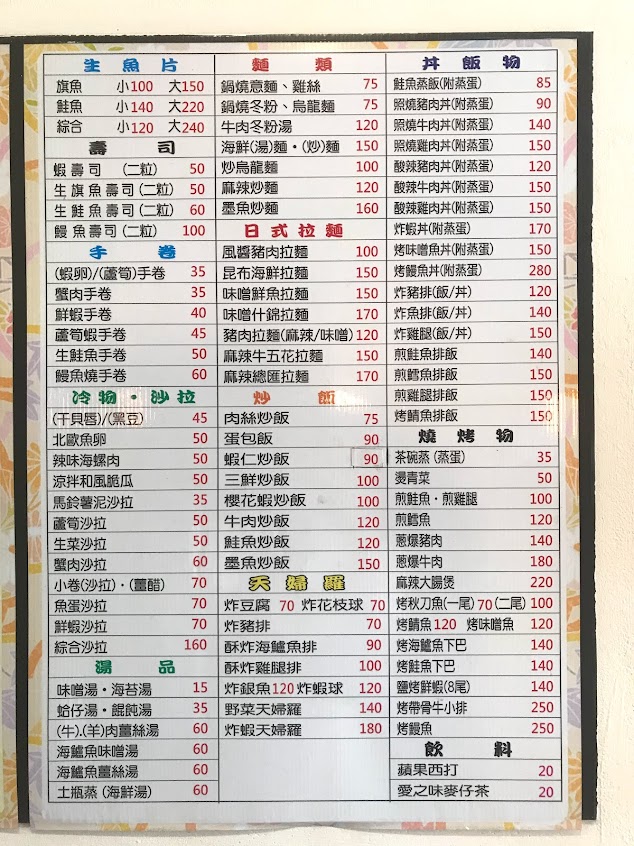 生魚片
旗魚 小100 大150
鮭魚 小140 大220
綜合 小120 大240
壽司
蝦壽司 (二粒) 50
生旗魚壽司(二粒) 50
生鮭魚壽司(二粒) 60
鰻魚壽司(二粒) 100
手卷
(蝦卵)/(蘆筍)手卷 35
蟹肉手卷 35
鮮蝦手卷 40
蘆筍蝦手卷 45
生鮭魚手卷 50
鰻魚燒手卷 60
冷物·沙拉
(干貝唇)/(黑豆) 45
北歐魚卵 50
辣味海螺肉 50
涼拌和風脆瓜 50
馬鈴薯泥沙拉 35
蘆筍沙拉 50
生菜沙拉 50
蟹肉沙拉 60
小卷(沙拉)·(薑醋) 70
魚蛋沙拉 70
鮮蝦沙拉 70
綜合沙拉 160
湯品
味噌湯·海苔湯 15
蛤仔湯·餛飩湯 35
(牛).(羊)肉薑絲湯 60
海鱺魚味噌湯 60
海鱺魚薑絲湯 60
土瓶蒸 (海鮮湯) 60
麵類
鍋燒意麵、雞絲 75
鍋燒冬粉、烏龍麵 75
牛肉冬粉湯 120
海鮮(湯)麵·(炒)麵 150
炒烏龍麵 100
麻辣炒麵 120
墨魚炒麵 160
日式拉麵
風醬豬肉拉麵 100
昆布海鮮拉麵 150
味噌鮮魚拉麵 150
味噌什錦拉麵 170
豬肉拉麵(麻辣/味噌) 120
麻辣牛五花拉麵 150
麻辣總匯拉麵 170
炒飯
肉絲炒飯 75
蛋包飯 90
蝦仁炒飯 90
三鮮炒飯 100
櫻花蝦炒飯 100
牛肉炒飯 120
鮭魚炒飯 120
墨魚炒飯 150
天婦羅
炸豆腐 70 炸花枝球 70
炸豬排 70
酥炸海鱺魚排 90
酥炸雞腿排 100
炸銀魚120 炸蝦球 120
野菜天婦羅 140
炸蝦天婦羅 180
丼飯物
鮭魚蒸飯(附蒸蛋) 85
照燒豬肉丼(附蒸蛋) 90
照燒牛肉丼(附蒸蛋) 140
照燒雞肉丼(附蒸蛋) 150
酸辣豬肉丼(附蒸蛋) 120
酸辣牛肉丼(附蒸蛋) 150
酸辣雞肉丼(附蒸蛋) 150
炸蝦丼(附蒸蛋) 170
烤味噌魚丼(附蒸蛋) 150
烤鰻魚丼(附蒸蛋) 280
炸豬排(飯/丼) 120
炸魚排(飯/丼) 140
炸雞腿(飯/丼) 150
煎鮭魚排飯 140
煎鱈魚排飯 150
煎雞腿排飯 150
烤鯖魚排飯 150
燒烤物
茶碗蒸 (蒸蛋) 35
燙青菜 50
煎鮭魚·煎雞腿 100
煎鱈魚 120
蔥爆豬肉 140
蔥爆牛肉 180
麻辣大腸煲 220
烤秋刀魚(一尾)70(二尾)100
烤鯖魚120 烤味噌魚 120
烤海鱺魚下巴 140
烤鮭魚下巴 140
鹽烤鮮蝦(8尾) 140
烤帶骨牛小排 250
烤鰻魚 250
飲料
蘋果西打 20
愛之味麥仔茶 20